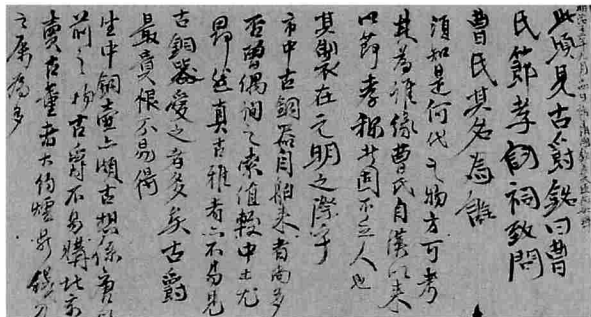 此頃見古爵銘曰曹
氏節孝詞祠致問
曹氏其名為誰
須知是何代之物方可考
其為誰係曹氏自漢以来
以節孝称者固不乏人也
其製衣在元明之際乎
市中古銅器自舶来者尚多
否曽偶詢之索值較中土尤
昂然真古雅者亦不易見
古銅器愛之者多矣古爵
最貴恨不易得
生中銅壷上頗古想係唐以
前之物古爵不易購北京
賣古董者大約爐鼎鏡
之属為多